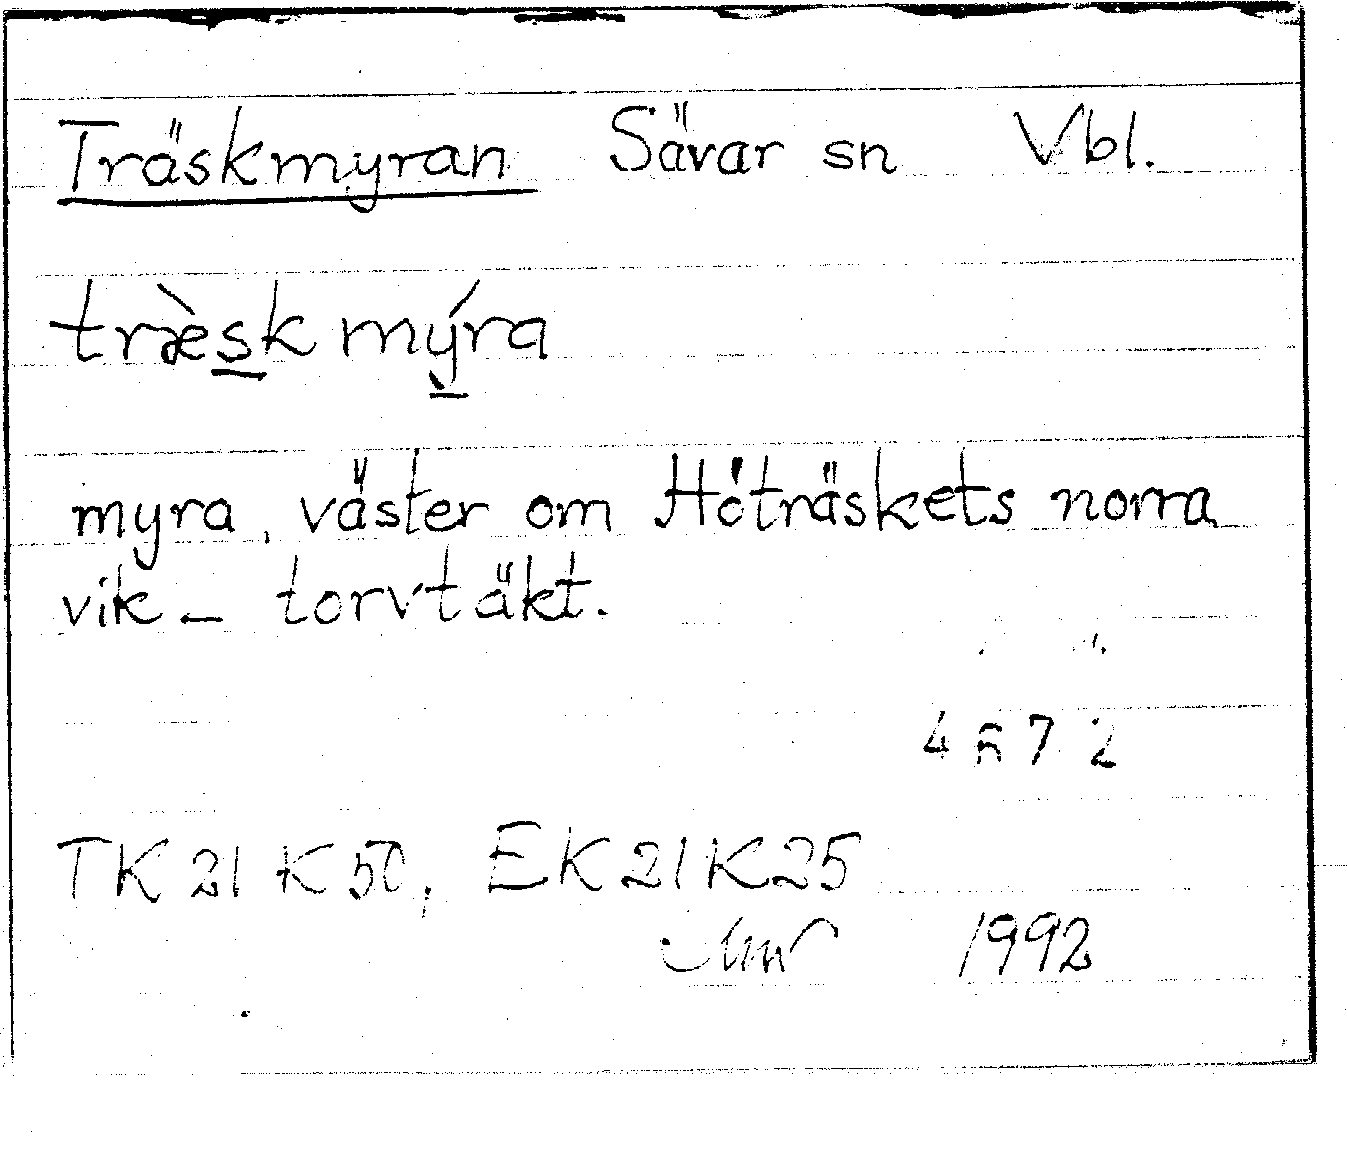 Träskmyran Sävar sn Vbl.
træ̀sk mýra
myra, väster om Höträskets norra
vik – torvtäkt.
TK 21 K 50, EK 21 K 25
1992